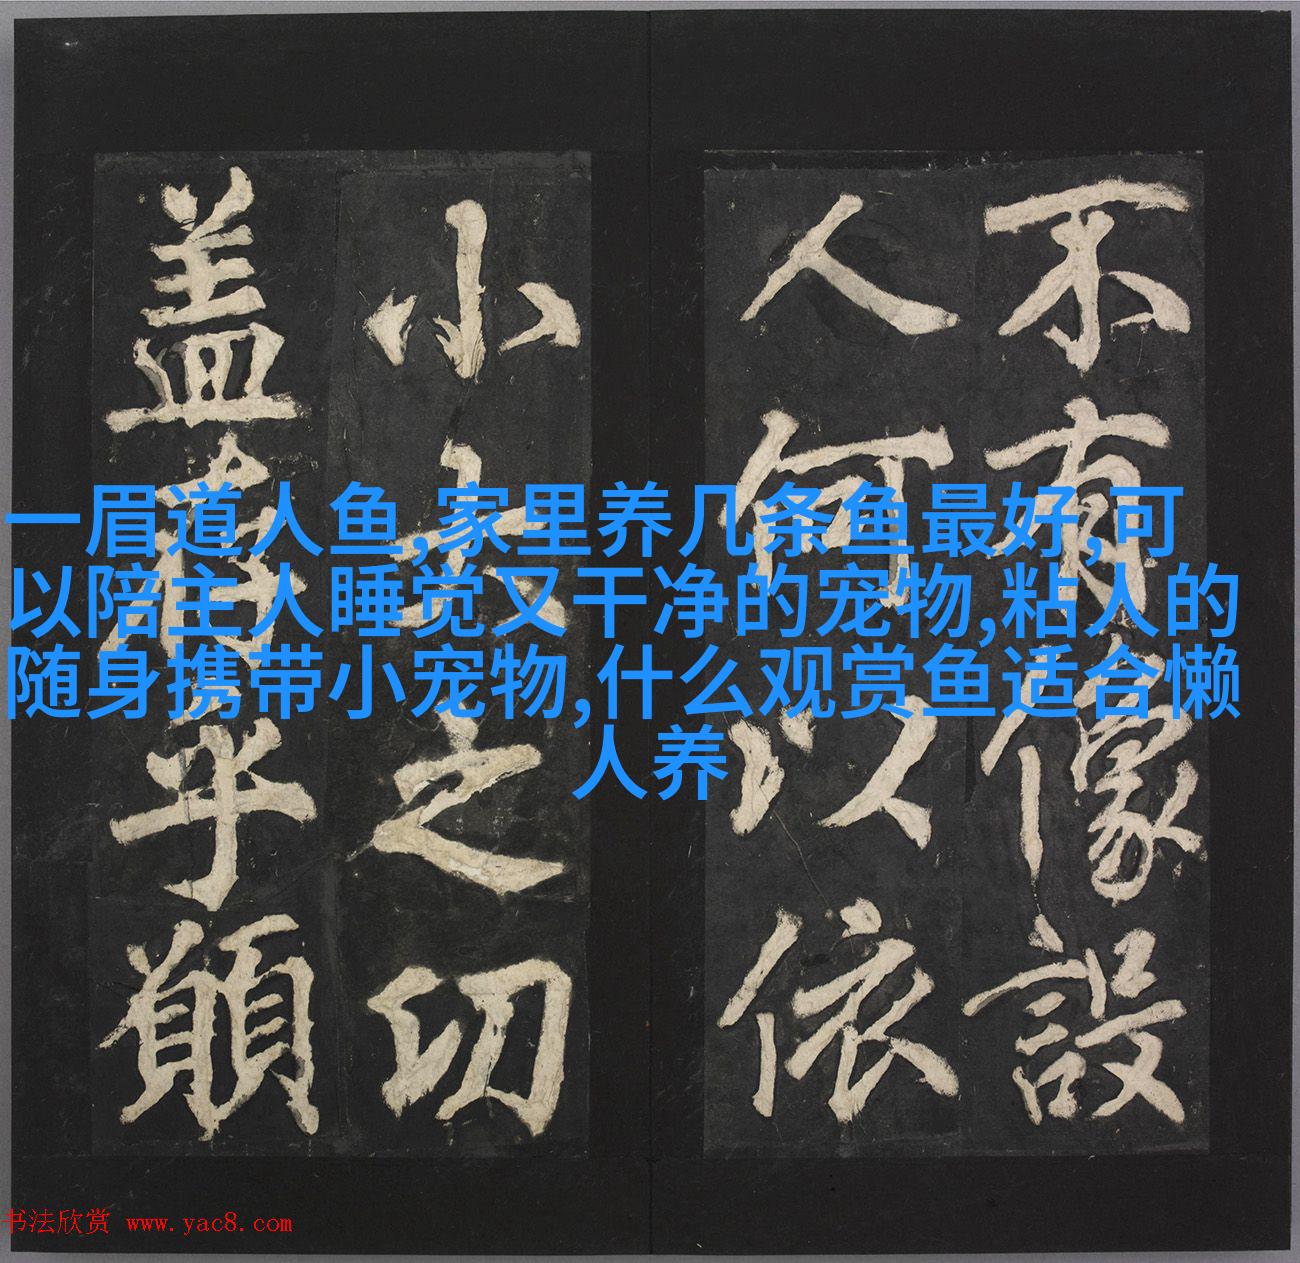 不有像設
人何以依
小之切
盖乎願
一眉道人鱼,家里养几条鱼最好,可
以陪主人睡觉又干净的宠物,粘人的
随身携带小宠物,什么观赏鱼适合懒
人养
书法欣赏 www.yac8.com